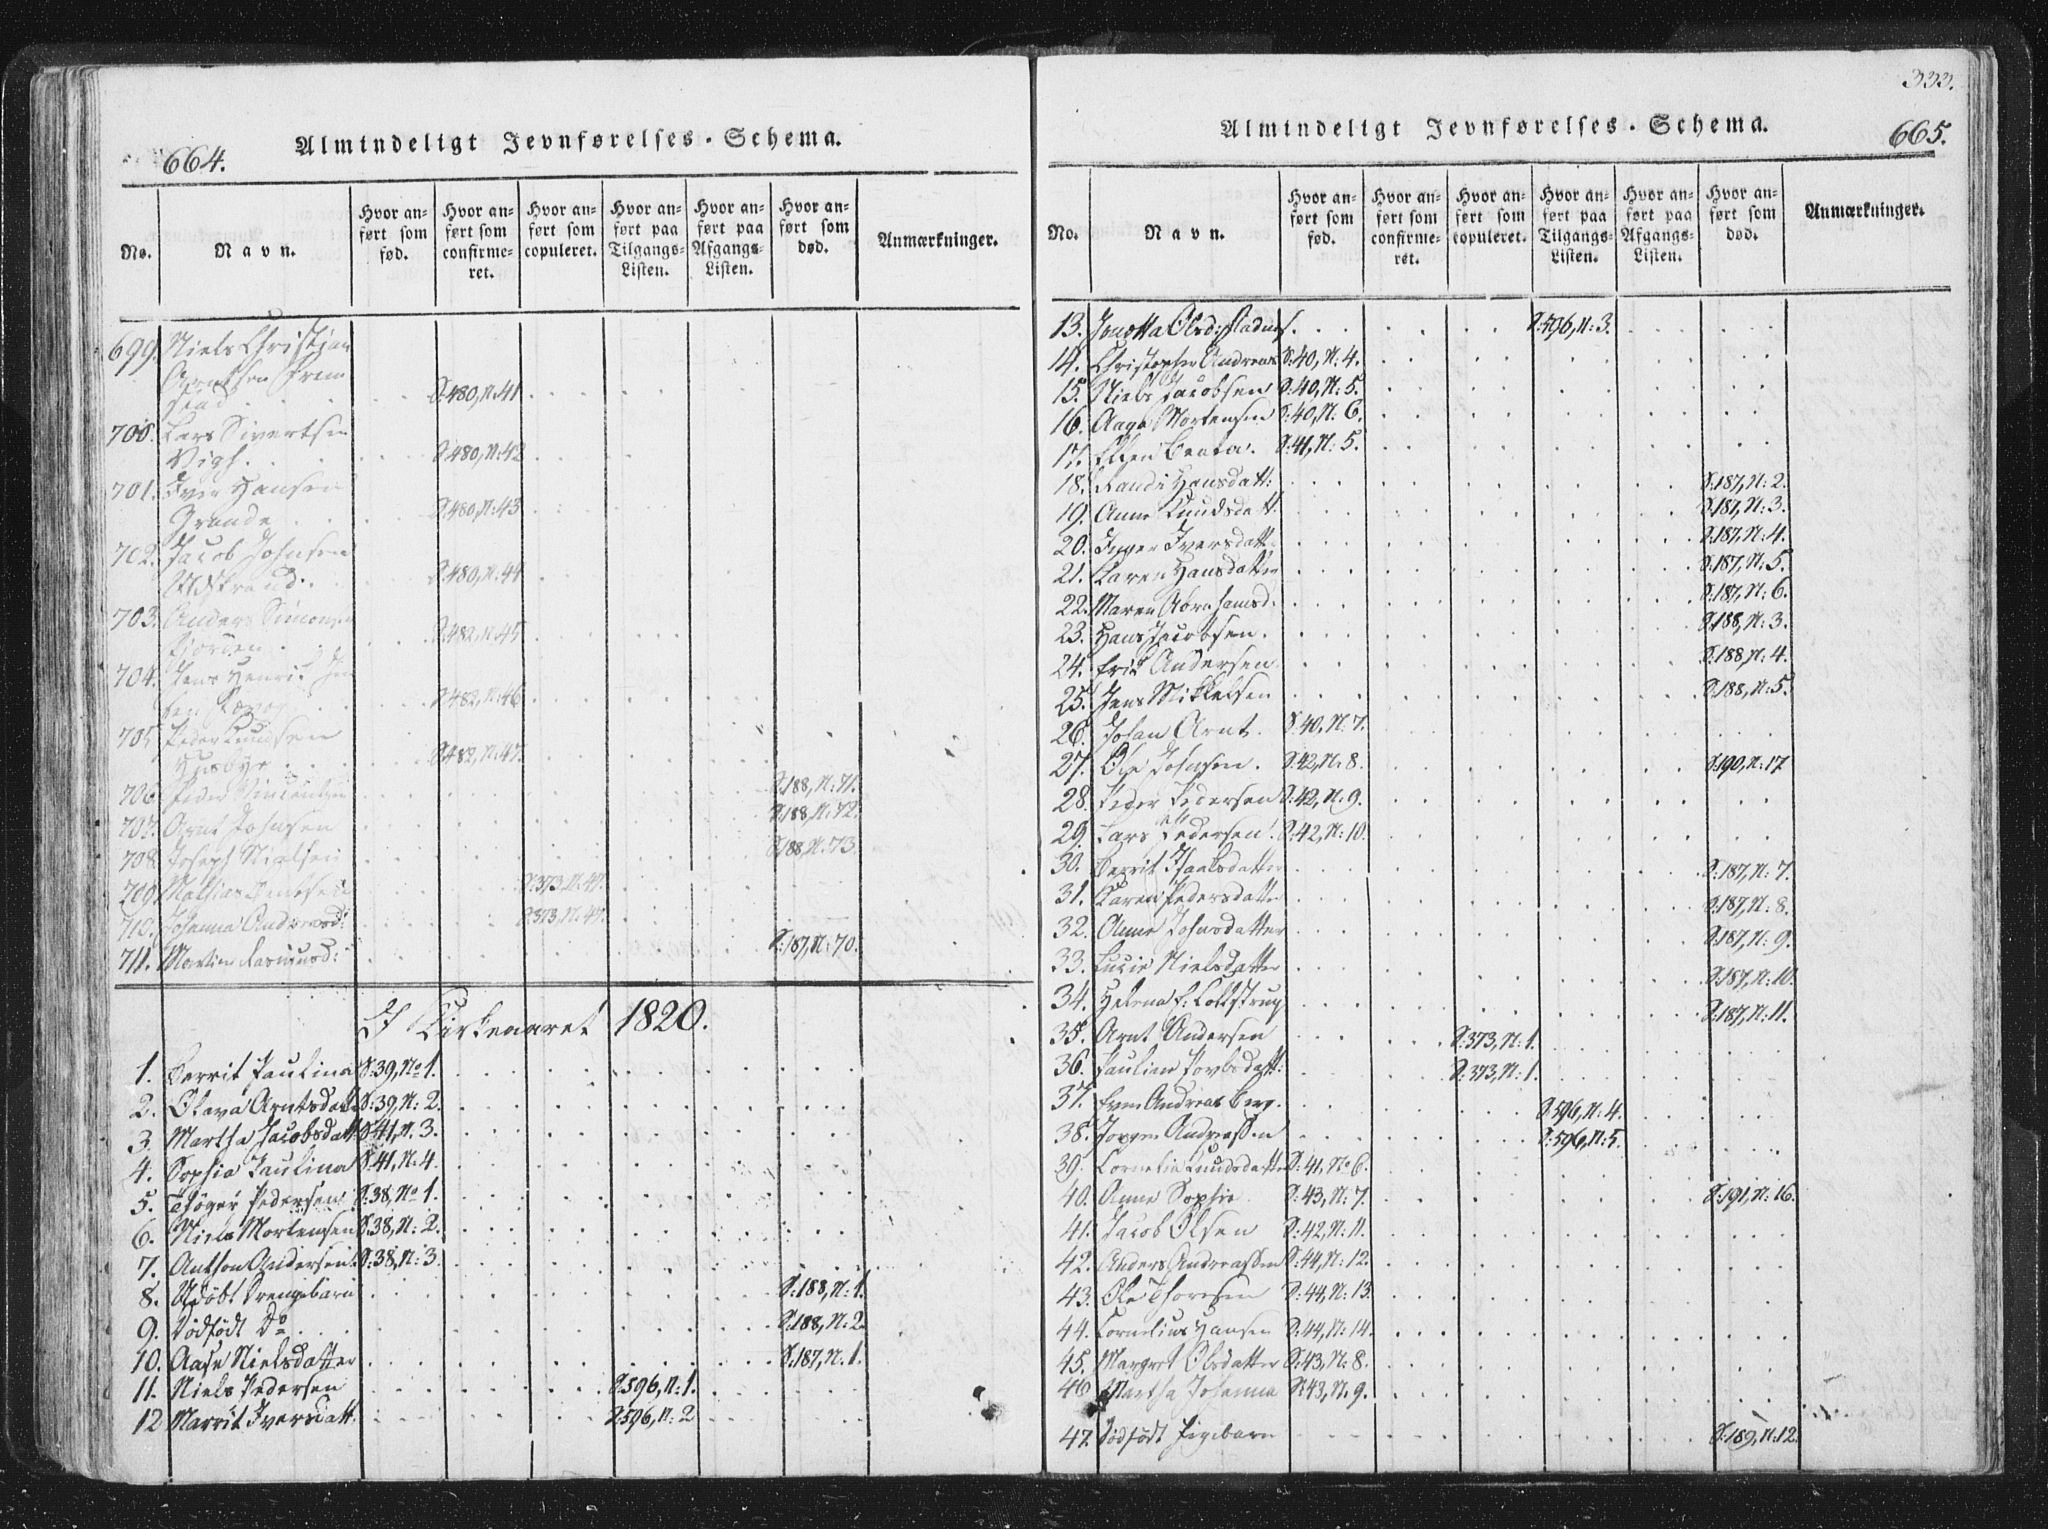 664.
Almindeligt Jevnførelses-Schema.
No. Navn. Hvor anført som fød. Hvor anført som confirmeret. Hvor anført som copuleret. Hvor anført paa Tilgangs-Listen. Hvor anført paa Afgangs-Listen. Hvor anført som død. Anmærkninger.
699. Niels Christian
S:480, N:41
700. Lars Sivertsen
Vigh. S:480, N:42
701. Iver Hansen
Grande S:480, N:43
702. Jacob Johnsen
Udstrand. S:480, N:44
703. Anders Simonsen
S:482, N:45
704. Jens Henric Jen
sen S:482, N:46
705. Peder Knudsen
Husbye S:482, N:47.
706. Peder S:188, N:71.
707. Arnt Johnsen S:188, N:72.
708. Joseph Nielsen S:188, N:73.
709. Mathias S:373, N:47.
710. Johanna Andreasd: S:373, N:47.
711. Rasmusd: S:187, N:70.
I Kirkeaaret 1820.
1. Berrit Paulina S:39, No 1.
2. Olava Arntsdatt S:39, N:2.
3. Martha Jacobsdatt S:41, N:3.
4. Sophia Paulina S:41, N:4.
5. Thöger Pedersen S:38, No 1.
6. Niels Mortensen S:38, N:2.
7. Anthon Andersen S:38, N:3.
8. Udöbt Drengebarn S:188, N:1.
9. Dödfödt Do S:188, N:2.
10. Aase Nielsdatter S:187, N:1.
11. Niels Pedersen S:596, N:1.
12. Marrit Iversdatt. S:596, N:2
333.
Almindeligt Jevnførelses-Schema.
665.
No. Navn. Hvor anført som fød. Hvor anført som confirmeret. Hvor anført som copuleret. Hvor anført paa Tilgangs-Listen. Hvor anført paa Afgangs-Listen. Hvor anført som død. Anmærkninger.
13. Jonetta Olsd: S:596, N:3.
14. Christopher Andreas S:40, N:4.
15. Niels Jacobsen S:40, N:5.
16. Aage Mortensen S:40, N:6.
17. Ellen Beata. S:41, N:5.
18. Randi Hansdatt: S:187, N:2.
19. Anne Knudsdatt. S:187, N:3.
20. Inger Iversdatt. S:187, N:4.
21. Karen Hansdatter S:187, N:5.
22. Maren Abrahamsd: S:187, N:6.
23. Hans Jacobsen. S:188, N:3.
24. Eric Andersen S:188, N:4.
25. Jens Mikkelsen S:188, N:5.
26. Johan Arnt. S:40, N:7.
27. Ole Johnsen. S:42, N:8. S:190, N:17
28. Peder Pedersen S:42, N:9.
29. Lars Pedersen S:42, N:10.
30. Berrit Isaaksdatter S:187, N:7.
31. Karen Pedersdatter S:187, N:8.
32. Anne Johnsdatter S:187, N:9.
33. Lucie Nielsdatter S:187, N:10.
34. Helena S:187, N:11.
35. Arnt Andersen S:373, N:1.
36. Paulina Povelsdatt: S:373, N:1.
37. Even Andreas Berg. S:596, N:4.
38. Jörgen Andreassen S:596, N:5.
39. Cornelia Knudsdatter S:41, No 6.
40. Anne Sophie S:43, N:7. S:191, N:16.
41. Jacob Olsen S:42, N:11.
42. Anders Andreassen S:44, N:12.
43. Ole Thoresen S:44, N:13.
44. Cornelius Hansen S:44, N:14.
45. Margret Olsdatter S:43, N:8.
46. Martha Johanna S:43, N:9.
47. Dödfödt Pigebarn S:189, N:12.